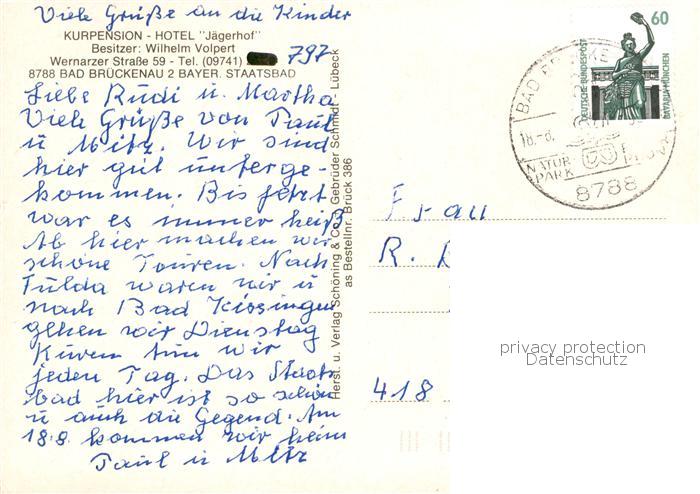 Viele Grüße an die Kinder
KURPENSION - HOTEL "Jägerhof"
Besitzer: Wilhelm Volpert
Wernarzer Straße 59 - Tel. (09741) 797
8788 BAD BRÜCKENAU 2 BAYER. STAATSBAD
Liebe Rudi u. Martha
Viele Grüße von Paul
u Mitz. Wir sind
hier gut unterge-
kommen. Bis jetzt
war es immer heiß
Ab hier machen wir
schöne Touren. Nach
Fulda waren wir u
nach Bad Kissingen
gehen wir Dienstag
Kuren tun wir
jeden Tag. Das Staats
bad hier ist so schön
u auch die Gegend. Am
18.8. kommen wir heim
Paul u Mitz
Herst. u. Verlag Schöning & Co + Gebrüder Schmidt - Lübeck
as Bestellnr. Brück 386
60
DEUTSCHE BUNDESPOST
BAVARIA MÜNCHEN
BAD
18.-8.
NATUR
PARK
8788
Frau
R.
418
privacy protection
Datenschutz